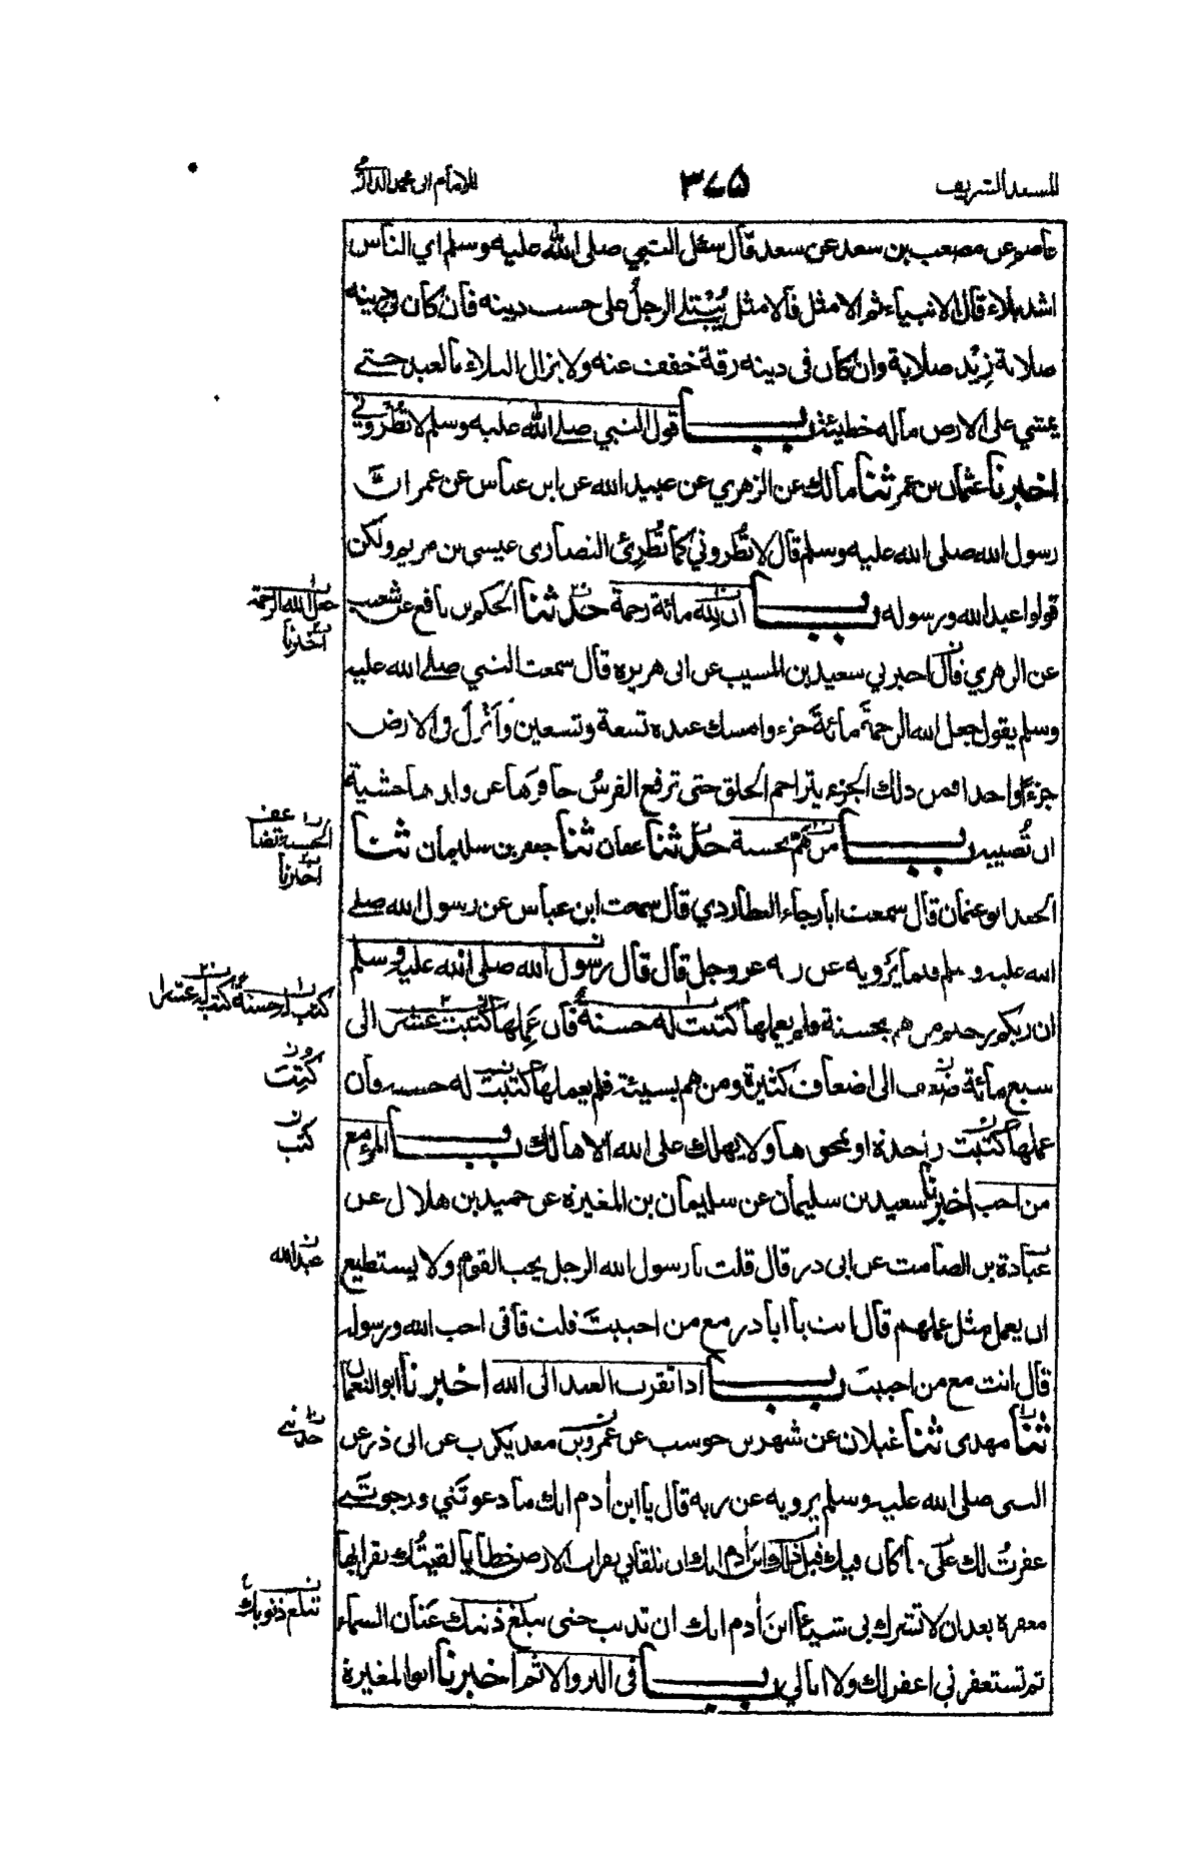 المسند الشريف
٣٧٥
للامام ابى محمد الدارمى
عاصم عن مصعب بن سعد عن سعد قال سئل النبي صلى الله عليه وسلم اي الناس
اشد بلاء قال الانبياء ثم الامثل فالامثل يُبْتلى الرجلُ على حسب دينه فان كان فى دينه
صلابة زِيْد صلابة وان كان فى دينه رقة خفف عنه ولا يزال البلاء بالعبد حتے
يمشي على الارض ماله خطيئة باب قول النبي صلے الله عليه وسلم لا تُطْروني
اخبرنا عثمان بن عمر ثنا مالك عن الزهري عن عبيد الله عن ابن عباس عن عمر انّ
رسول الله صلى الله عليه وسلم قال لا تُطْروني كما تُطْرِئ النصارى عيسى بن مريم ولكن
قولوا عبد الله ورسوله باب ان لله مائة رحمة حدثنا الحكم بن نافع عن شعيب
عن الزهري قال اخبرني سعيد بن المسيب عن ابى هريرة قال سمعت النبي صلے الله عليه
وسلم يقول جعل الله الرحمةَ مائةَ جزء وامسك عنده تسعة وتسعين وانزل فى الارض
جزءًا واحدا فمن ذلك الجزء يتراحم الخلق حتى ترفع الفرسُ حافرها عن ولدها خشية
ان تُصيبه باب من هَمَّ بحسنة حدثنا عفان ثنا جعفر بن سليمان ثنا
الجعد ابو عثمان قال سمعت ابا رجاء العطاردي قال سمعت ابن عباس عن رسول الله صلے
الله عليه وسلم فيما يَرويه عن ربه عز وجل قال قال رسول الله صلى الله عليه وسلم
ان ربكم رحيم من هم بحسنة فلم يعملها كتبت له حسنة فان عَمِلها كتبت عشرا الى
سبع مائة ضعف الى اضعاف كثيرة ومن هم بسيئة فلم يعملها كتبت له حسنة فان
عملها كتبت واحدة او يمحوها ولا يهلك على الله الا هالك باب المرء مع
من احب اخبرنا سعيد بن سليمان عن سليمان بن المغيرة عن حميد بن هلال عن
عبادة بن الصامت عن ابى ذر قال قلت يا رسول الله الرجل يحب القوم ولا يستطيع
ان يعمل مثل عملهم قال انت يا ابا ذر مع من احببت قلت فانى احب الله ورسوله
قال انت مع من احببت باب اذا تقرب العبد الى الله اخبرنا ابو النعمان
ثنا مهدى ثنا غيلان عن شهر بن حوشب عن عمرو بن معديكرب عن ابى ذر عن
النبى صلى الله عليه وسلم يرويه عن ربه قال يا ابن أدم انك ما دعوتَني ورجوتَنے
غفرتُ لك على ما كان فيك ابن أدم انك ان تلقاني بقراب الارض خطايا لقيتُك بقرابها
مغفرة بعد ان لا تشرك بى شيئا ابنَ أدم انك ان تذنب حتى يبلغ ذنبك عَنان السماء
ثم تستغفرني اغفر لك ولا ابالي باب فى البر والاثم اخبرنا ابو المغيرة
جعل الله الرحمة
اخبرنا
اخبرنا
كتب
عبد الله
حدثنے
تبلغ ذنوبك